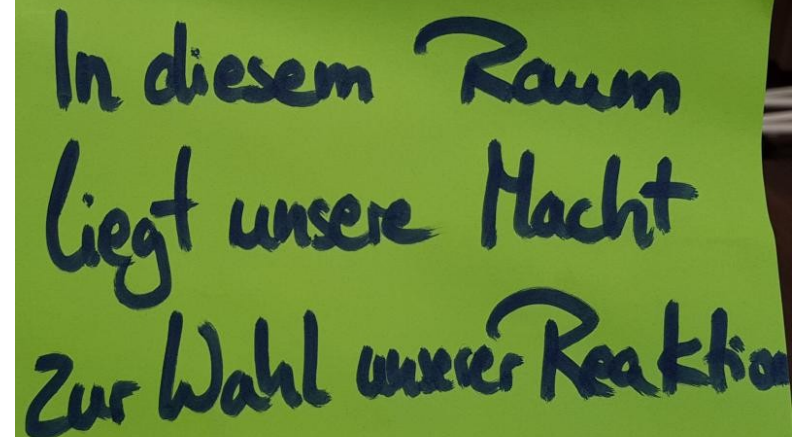 In diesem Raum
liegt unsere Macht
zur Wahl unserer Reaktion